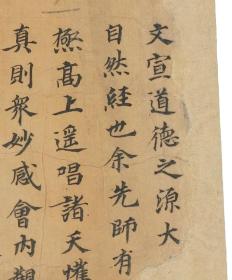 文宣道德之源大
自然経也余先師有
極高上遥唱諸天懽
真則衆妙感會内觀